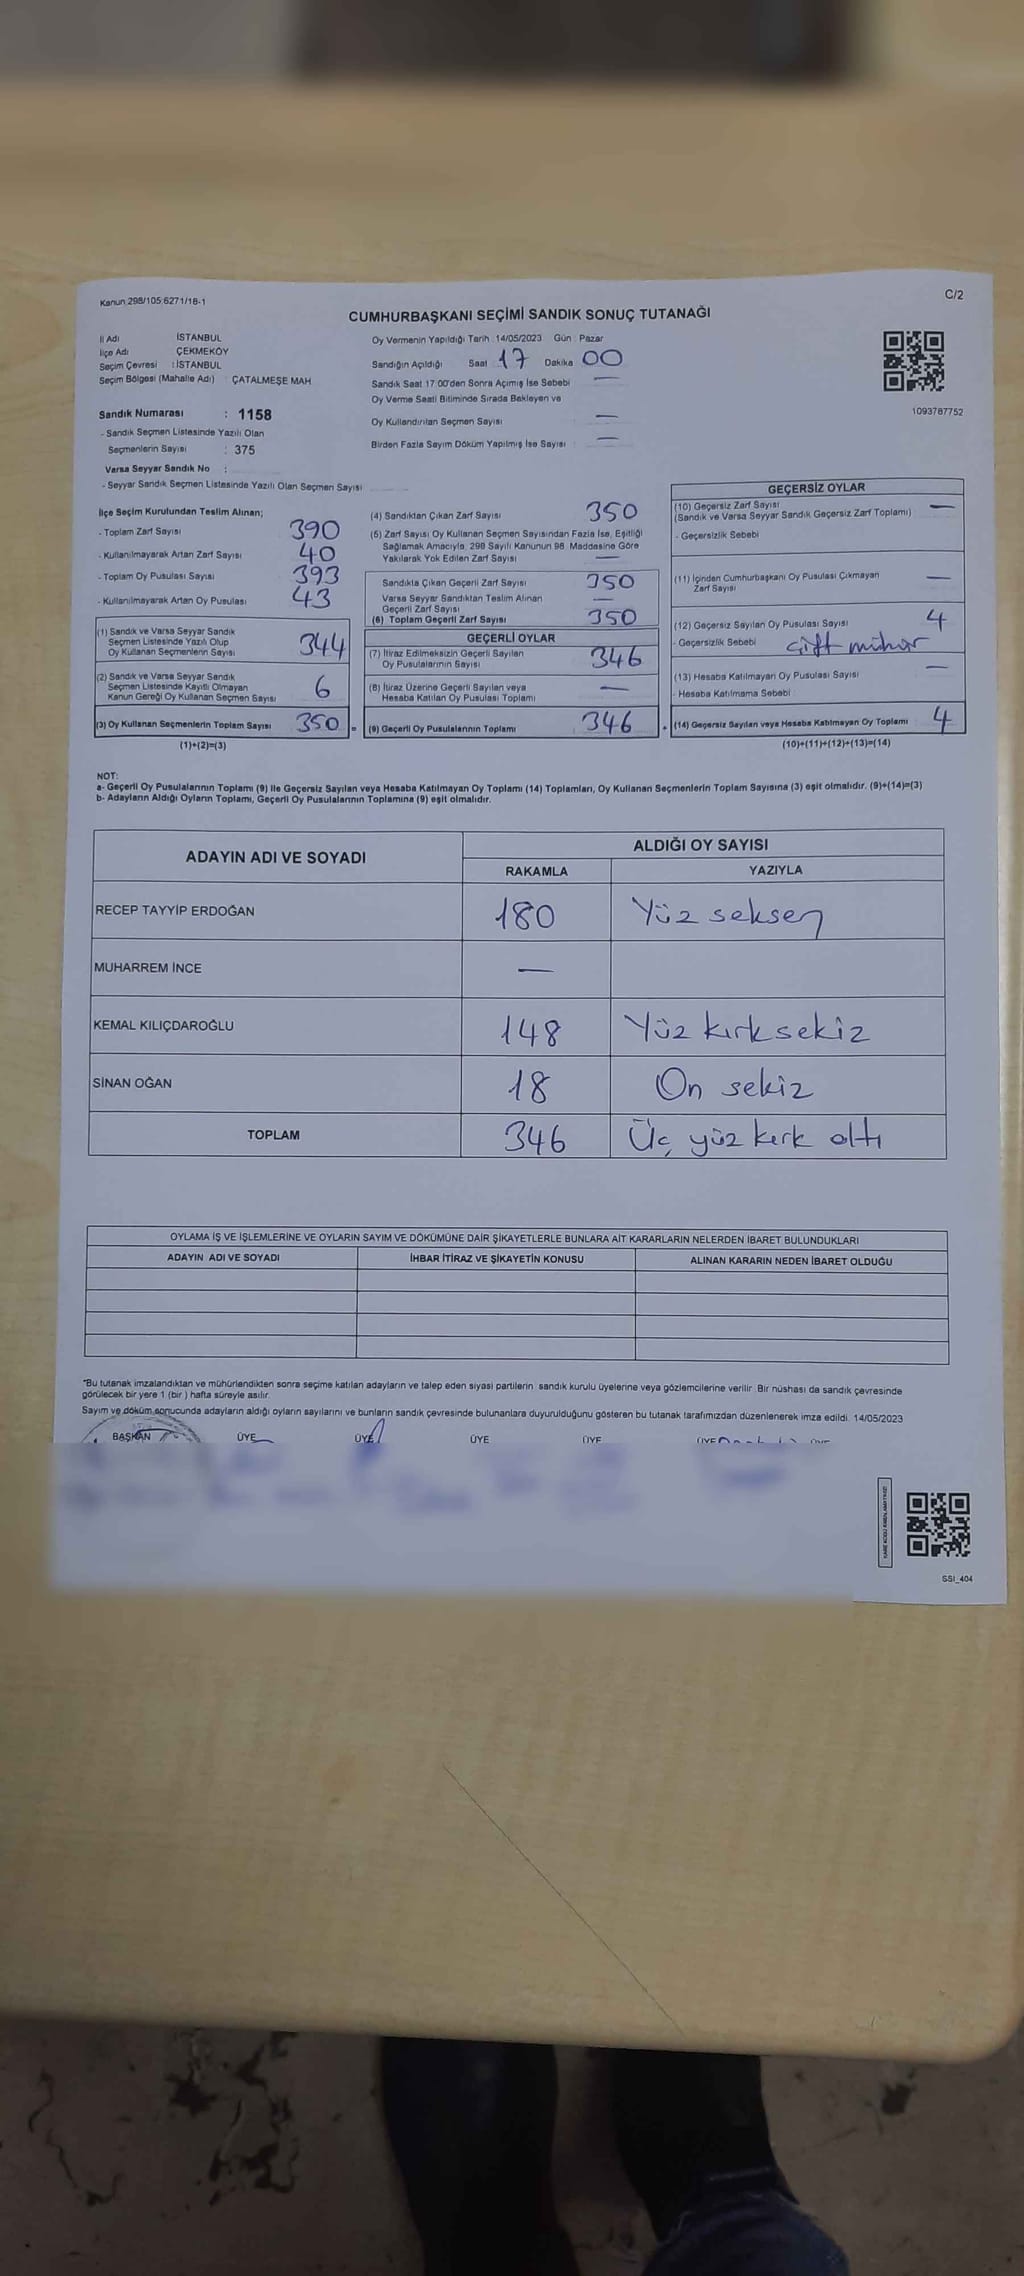 Kanun 298/105 6271/18-1
C/2
CUMHURBAŞKANI SEÇİMİ SANDIK SONUÇ TUTANAĞI
İl Adı İSTANBUL
İlçe Adı ÇEKMEKÖY
Seçim Çevresi : İSTANBUL
Seçim Bölgesi (Mahalle Adı) : ÇATALMEŞE MAH
Sandık Numarası : 1158
- Sandık Seçmen Listesinde Yazılı Olan
Seçmenlerin Sayısı : 375
Varsa Seyyar Sandık No :
- Seyyar Sandık Seçmen Listesinde Yazılı Olan Seçmen Sayısı
Oy Vermenin Yapıldığı Tarih : 14/05/2023 Gün : Pazar
Sandığın Açıldığı Saat 17 Dakika 00
Sandık Saat 17:00'den Sonra Açılmış İse Sebebi —
Oy Verme Saati Bitiminde Sırada Bekleyen ve
Oy Kullandırılan Seçmen Sayısı —
Birden Fazla Sayım Döküm Yapılmış İse Sayısı —
1093787752
İlçe Seçim Kurulundan Teslim Alınan;
- Toplam Zarf Sayısı 390
- Kullanılmayarak Artan Zarf Sayısı 40
- Toplam Oy Pusulası Sayısı 393
- Kullanılmayarak Artan Oy Pusulası 43
(1) Sandık ve Varsa Seyyar Sandık
Seçmen Listesinde Yazılı Olup
Oy Kullanan Seçmenlerin Sayısı 344
(2) Sandık ve Varsa Seyyar Sandık
Seçmen Listesinde Kayıtlı Olmayan
Kanun Gereği Oy Kullanan Seçmen Sayısı 6
(3) Oy Kullanan Seçmenlerin Toplam Sayısı 350
(1)+(2)=(3)
(4) Sandıktan Çıkan Zarf Sayısı 350
(5) Zarf Sayısı Oy Kullanan Seçmen Sayısından Fazla İse, Eşitliği
Sağlamak Amacıyla, 298 Sayılı Kanunun 98. Maddesine Göre
Yakılarak Yok Edilen Zarf Sayısı —
Sandıkta Çıkan Geçerli Zarf Sayısı 350
Varsa Seyyar Sandıktan Teslim Alınan
Geçerli Zarf Sayısı —
(6) Toplam Geçerli Zarf Sayısı 350
GEÇERLİ OYLAR
(7) İtiraz Edilmeksizin Geçerli Sayılan
Oy Pusulalarının Sayısı 346
(8) İtiraz Üzerine Geçerli Sayılan veya
Hesaba Katılan Oy Pusulası Toplamı —
(9) Geçerli Oy Pusulalarının Toplamı 346
GEÇERSİZ OYLAR
(10) Geçersiz Zarf Sayısı —
(Sandık ve Varsa Seyyar Sandık Geçersiz Zarf Toplamı)
- Geçersizlik Sebebi
(11) İçinden Cumhurbaşkanı Oy Pusulası Çıkmayan
Zarf Sayısı —
(12) Geçersiz Sayılan Oy Pusulası Sayısı 4
- Geçersizlik Sebebi çift mühür
(13) Hesaba Katılmayan Oy Pusulası Sayısı —
- Hesaba Katılmama Sebebi
(14) Geçersiz Sayılan veya Hesaba Katılmayan Oy Toplamı 4
(10)+(11)+(12)+(13)=(14)
NOT:
a- Geçerli Oy Pusulalarının Toplamı (9) ile Geçersiz Sayılan veya Hesaba Katılmayan Oy Toplamı (14) Toplamları, Oy Kullanan Seçmenlerin Toplam Sayısına (3) eşit olmalıdır. (9)+(14)=(3)
b- Adayların Aldığı Oyların Toplamı, Geçerli Oy Pusulalarının Toplamına (9) eşit olmalıdır.
ADAYIN ADI VE SOYADI ALDIĞI OY SAYISI
RAKAMLA YAZIYLA
RECEP TAYYİP ERDOĞAN 180 Yüz seksen
MUHARREM İNCE —
KEMAL KILIÇDAROĞLU 148 Yüz kırk sekiz
SİNAN OĞAN 18 On sekiz
TOPLAM 346 Üç yüz kırk altı
OYLAMA İŞ VE İŞLEMLERİNE VE OYLARIN SAYIM VE DÖKÜMÜNE DAİR ŞİKAYETLERLE BUNLARA AİT KARARLARIN NELERDEN İBARET BULUNDUKLARI
ADAYIN ADI VE SOYADI İHBAR İTİRAZ VE ŞİKAYETİN KONUSU ALINAN KARARIN NEDEN İBARET OLDUĞU
*Bu tutanak imzalandıktan ve mühürlendikten sonra seçime katılan adayların ve talep eden siyasi partilerin sandık kurulu üyelerine veya gözlemcilerine verilir. Bir nüshası da sandık çevresinde
görülecek bir yere 1 (bir) hafta süreyle asılır.
Sayım ve döküm sonucunda adayların aldığı oyların sayılarını ve bunların sandık çevresinde bulunanlara duyurulduğunu gösteren bu tutanak tarafımızdan düzenlenerek imza edildi. 14/05/2023
BAŞKAN ÜYE ÜYE ÜYE ÜYE ÜYE ÜYE
SSI_404